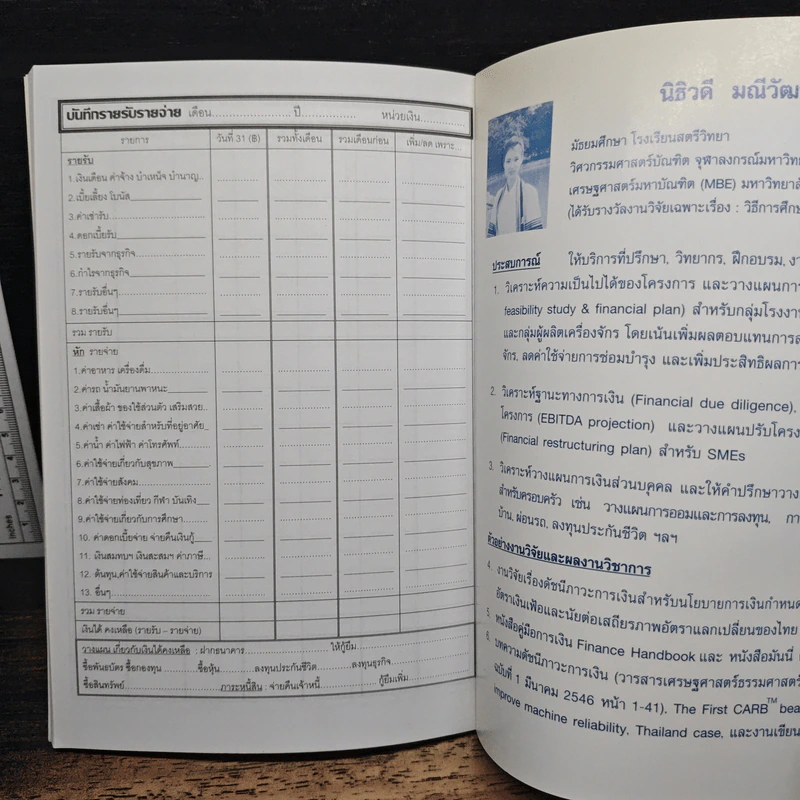 บันทึกรายรับรายจ่าย เดือน...................... ปี............... หน่วยเงิน.............
รายการ วันที่ 31 (฿) รวมทั้งเดือน รวมเดือนก่อน เพิ่ม/ลด เพราะ...
รายรับ
1.เงินเดือน ค่าจ้าง บำเหน็จ บำนาญ..
2.เบี้ยเลี้ยง โบนัส
3.ค่าเช่ารับ
4.ดอกเบี้ยรับ
5.รายรับจากธุรกิจ
6.กำไรจากธุรกิจ
7.รายรับอื่นๆ
8.รายรับอื่นๆ
รวม รายรับ
หัก รายจ่าย
1.ค่าอาหาร เครื่องดื่ม
2.ค่ารถ น้ำมันยานพาหนะ
3.ค่าเสื้อผ้า ของใช้ส่วนตัว เสริมสวย
4.ค่าเช่า ค่าใช้จ่ายสำหรับที่อยู่อาศัย
5.ค่าน้ำ ค่าไฟฟ้า ค่าโทรศัพท์
6.ค่าใช้จ่ายเกี่ยวกับสุขภาพ
7.ค่าใช้จ่ายสังคม
8.ค่าใช้จ่ายท่องเที่ยว กีฬา บันเทิง
9.ค่าใช้จ่ายเกี่ยวกับการศึกษา
10. ค่าดอกเบี้ยจ่าย จ่ายคืนเงินกู้
11. เงินสมทบฯ เงินสะสมฯ ค่าภาษี
12. ต้นทุน,ค่าใช้จ่ายสินค้าและบริการ
13. อื่นๆ
รวม รายจ่าย
เงินได้ คงเหลือ (รายรับ – รายจ่าย)
วางแผน เกี่ยวกับเงินได้คงเหลือ : ฝากธนาคาร........................ให้กู้ยืม
ซื้อพันธบัตร ซื้อกองทุน................ซื้อหุ้น.............ลงทุนประกันชีวิต.............ลงทุนธุรกิจ
ซื้อสินทรัพย์........................ภาระหนี้สิน : จ่ายคืนเจ้าหนี้................กู้ยืมเพิ่ม
นิธิวดี มณีวัฒ
มัธยมศึกษา โรงเรียนสตรีวิทยา
วิศวกรรมศาสตร์บัณฑิต จุฬาลงกรณ์มหาวิทย
เศรษฐศาสตร์มหาบัณฑิต (MBE) มหาวิทยาลั
(ได้รับรางวัลงานวิจัยเฉพาะเรื่อง : วิธีการศึกษ
ประสบการณ์ ให้บริการที่ปรึกษา, วิทยากร, ฝึกอบรม, งา
1. วิเคราะห์ความเป็นไปได้ของโครงการ และวางแผนการ
feasibility study & financial plan) สำหรับกลุ่มโรงงาน
และกลุ่มผู้ผลิตเครื่องจักร โดยเน้นเพิ่มผลตอบแทนการล
จักร, ลดค่าใช้จ่ายการซ่อมบำรุง และเพิ่มประสิทธิผลการ
2. วิเคราะห์ฐานะทางการเงิน (Financial due diligence),
โครงการ (EBITDA projection) และวางแผนปรับโครง
(Financial restructuring plan) สำหรับ SMEs
3. วิเคราะห์วางแผนการเงินส่วนบุคคล และให้คำปรึกษาวาง
สำหรับครอบครัว เช่น วางแผนการออมและการลงทุน, กา
บ้าน, ผ่อนรถ, ลงทุนประกันชีวิต ฯลฯ
ตัวอย่างงานวิจัยและผลงานวิชาการ
4. งานวิจัยเรื่องดัชนีภาวะการเงินสำหรับนโยบายการเงินกำหนด
อัตราเงินเฟ้อและนัยต่อเสถียรภาพอัตราแลกเปลี่ยนของไทย
5. หนังสือคู่มือการเงิน Finance Handbook และ หนังสือมันนี่
6. บทความดัชนีภาวะการเงิน (วารสารเศรษฐศาสตร์ธรรมศาสตร์
ฉบับที่ 1 มีนาคม 2546 หน้า 1-41). The First CARB™ bea
improve machine reliability, Thailand case, และงานเขียน
Inches
1
2
3
4
5
6